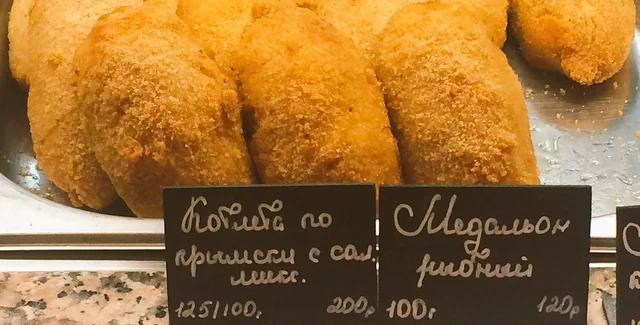 Котлета по
крымски с сал.
микс.
125/100г 200р
Медальон
рыбный
100г 120р
С